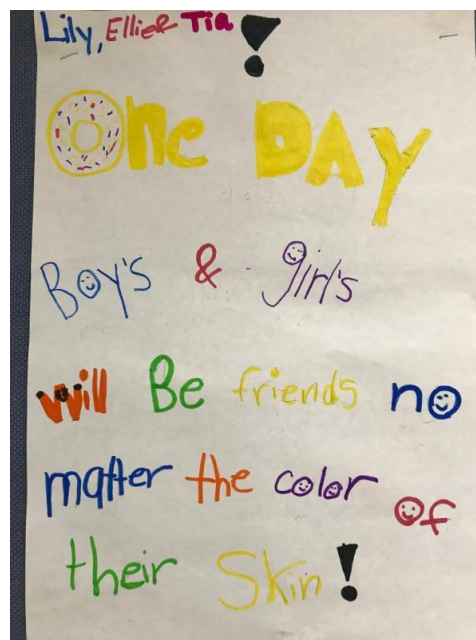 Lily, Ellie & Tia !
One DAY
Boy's & girl's
will Be friends no
matter the color of
their Skin!